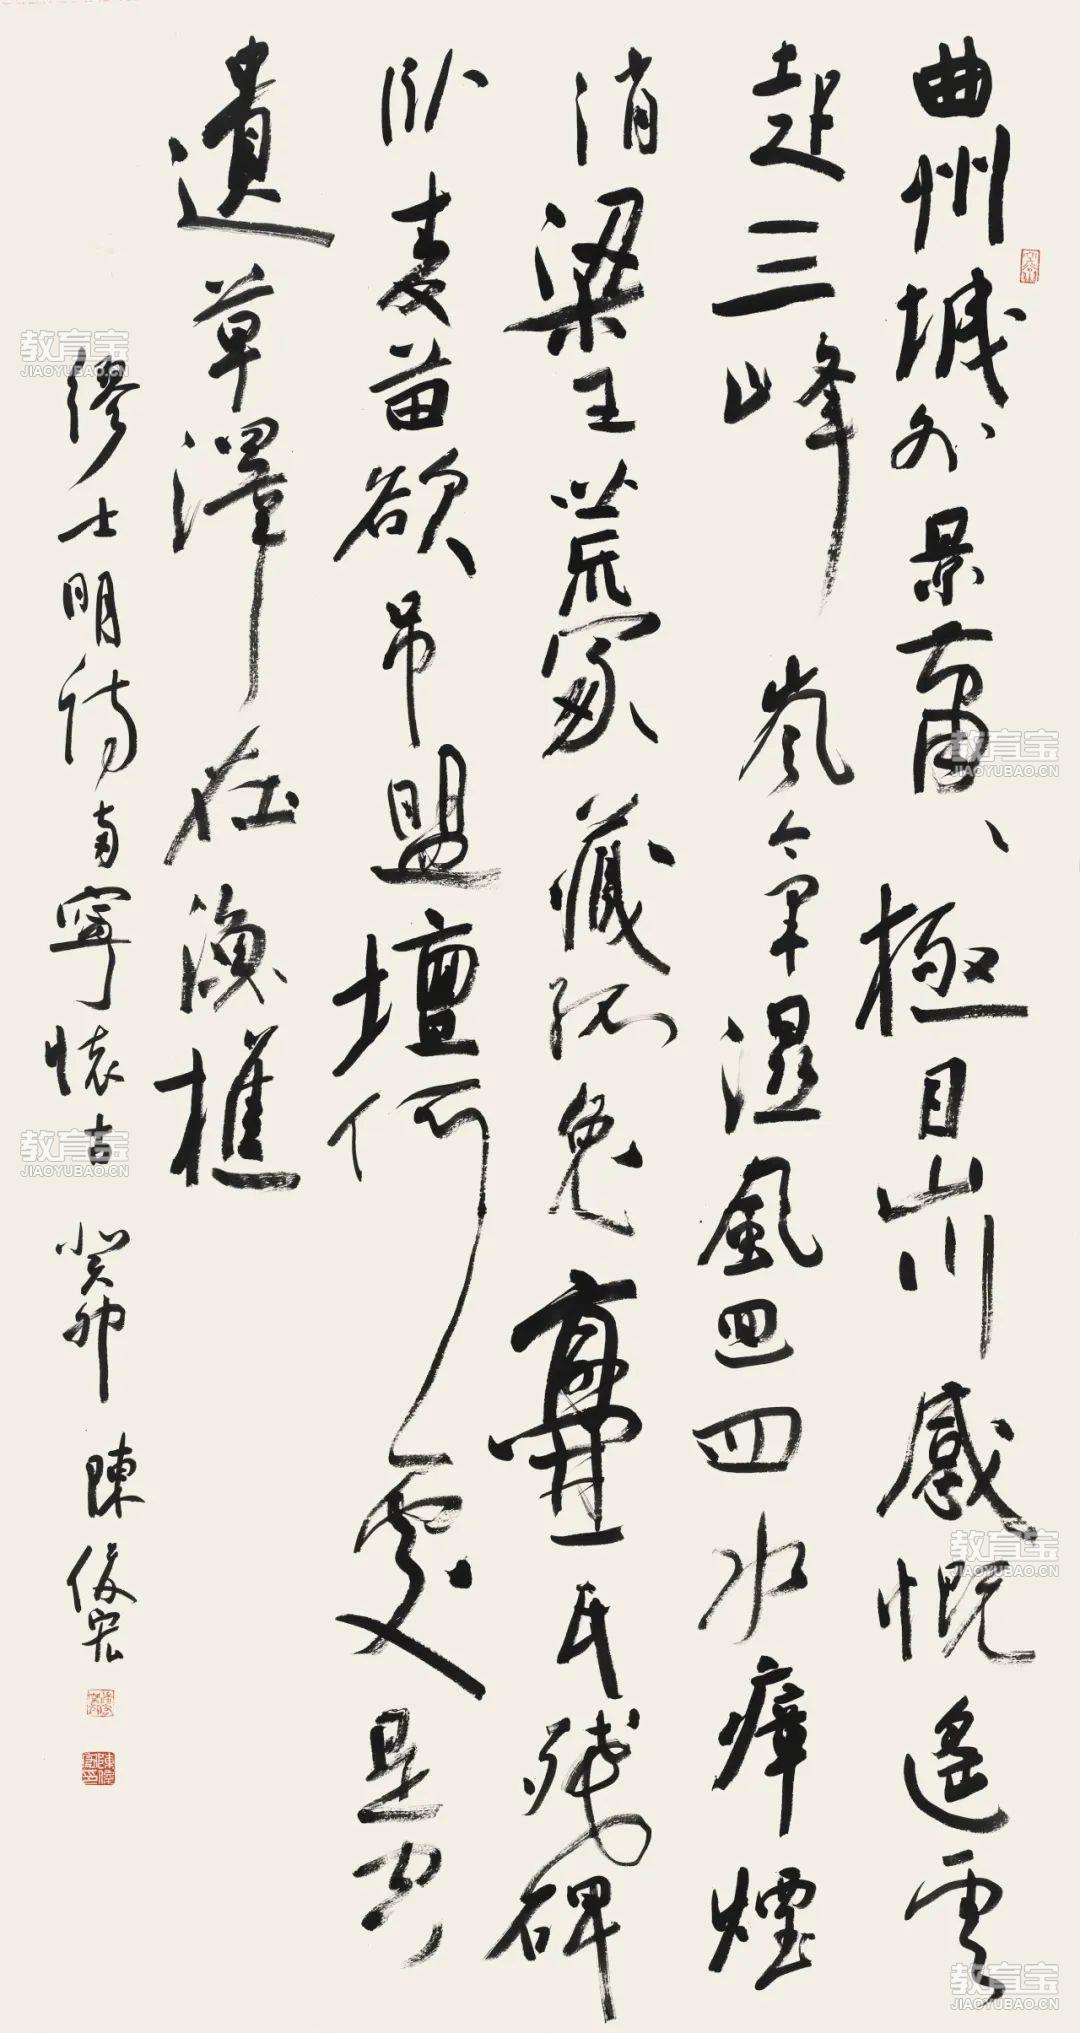 曲州城外景蕭、極目山川感慨遙雲
起三峰嵐氣濕風回四水瘴煙
消梁王荒冢藏狐兔爨氏残碑
卧麦苗欲吊盟壇何處是
遺草澤在漁樵
繆士明詩南寧懷古 癸卯 陳俊宏
教育宝
JIAOYUBAO.CN
教育宝
JIAOYUBAO.CN
教育宝
JIAOYUBAO.CN
教育宝
JIAOYUBAO.CN
教育宝
JIAOYUBAO.CN